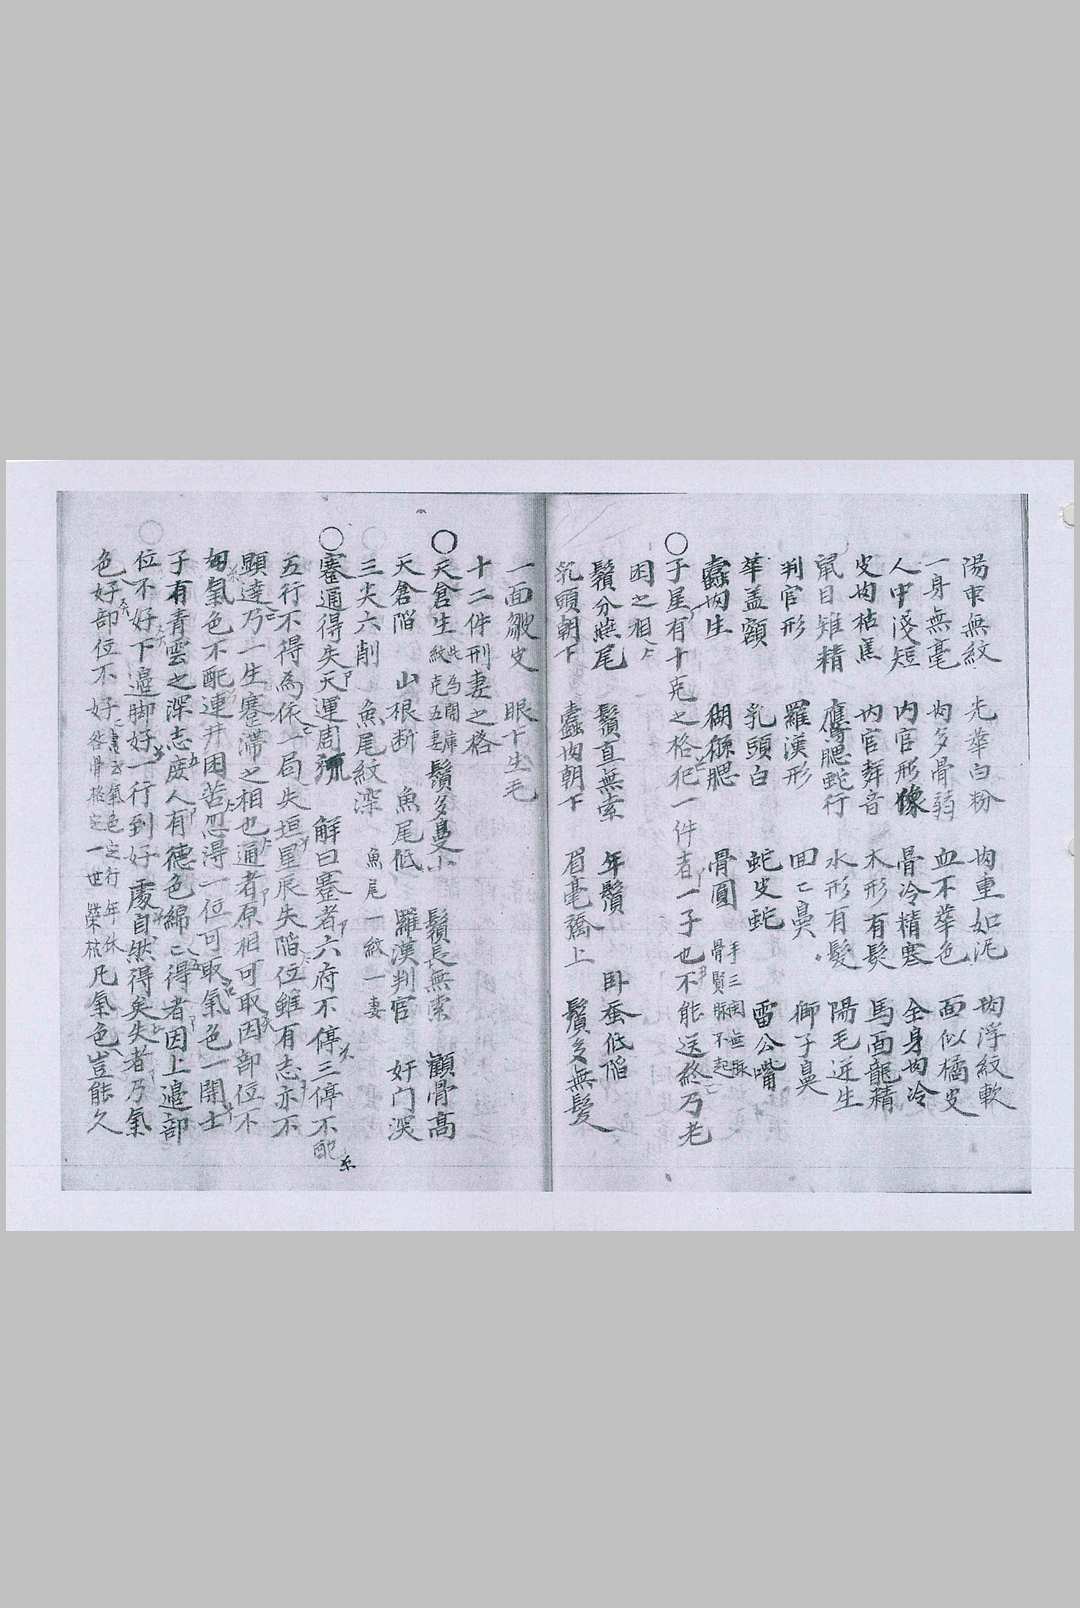 陽東無紋 光華白粉 肉重如泥 肉浮紋軟
一身無毫 肉多骨弱 血不華色 面似橘皮
人中淺短 内官形像 骨冷精寒 全身肉冷
皮肉枯焦 内官舞音 木形有髮 馬面龍精
鼠目雉精 鷹腮蛇行 水形有髮 陽毛逆生
判官形 羅漢形 回鼻 獅子鼻
華盖額 乳頭白 蛇皮蛇 雷公嘴
蠱肉生 糊猻腮 骨圓 手三關無脉 骨賢脉不起
○子星有十克之格犯一件者一子也不能送終乃老
困之相
鬚分燕尾 鬚直無索 年鬚 卧蚕低陷
乳頭朝下 蠱肉朝下 眉毫撟上 鬚多無髮
一面皺皮 眼下生毛
十二件刑妻之格
○天倉生紋此為開庫克五妻 鬚多蔓 鬚長無索 顴骨高
天倉陷 山根断 魚尾低 羅漢判官 奸门深
三尖六削 魚尾紋深 魚尾一紋一妻
○蹇通得失天運周流 解曰蹇者六府不停三停不配
五行不得為依一局失垣星辰失陷位雖有志亦不
顯達乃一生蹇滯之相也通者原相可取因部位不
匀氣色不配連井困苦忍淂一位可取氣色一開士
子有青雲之深志庶人有德色綿二得者因上邉部
位不好下邉脚好一行到好處自然得矣失者乃氣
色好部位不好書云氣色定行年休咎骨格定一世榮枯凡氣色豈能久